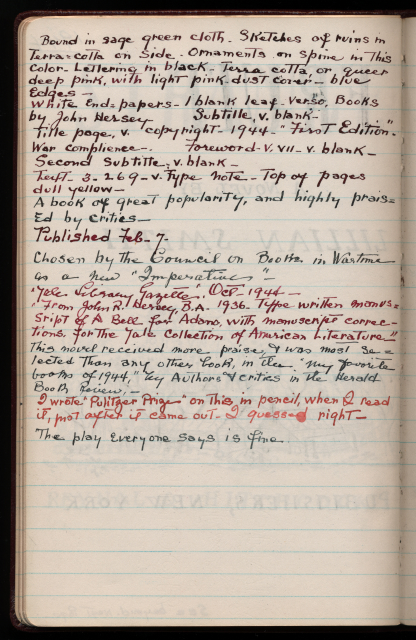 Bound in sage green cloth - Sketches of ruins in
Terra-cotta on side - Ornaments on spine in this
color - Lettering in black - Terra cotta, or queer
deep pink, with light pink dust cover - blue
Edges -
White End-papers - 1 blank leaf - Verso, Books
by John Hersey Subtitle, v. blank -
Title page, v. "copyright - 1944 - "First Edition".
War complience - Foreword - V. VII - v. blank -
Second Subtitle, v. blank -
Text - 3 - 269 - v. Type note - Top of pages
dull yellow -
A book of great popularity, and highly prais=
Ed by critics -
Published Feb. 7.
Chosen by the Council on Books in Wartime
as a new "Imperative" -
"Yale Library Gazette". Oct 1944 -
"From John R. Hersey, B.A. 1936 - Type written manus=
script of A Bell for Adano, with manuscript correc=
tions. for the Yale Collection of American Literature"
This novel received more praise, & was most se=
lected than any other book, in the "my favorite
books of 1944," by Authors & critics in the Herald
Book Review -
I wrote "Pulitzer Prize" on this, in pencil, when I read
it, not after it came out - I guessed right -
The play Everyone says is fine -